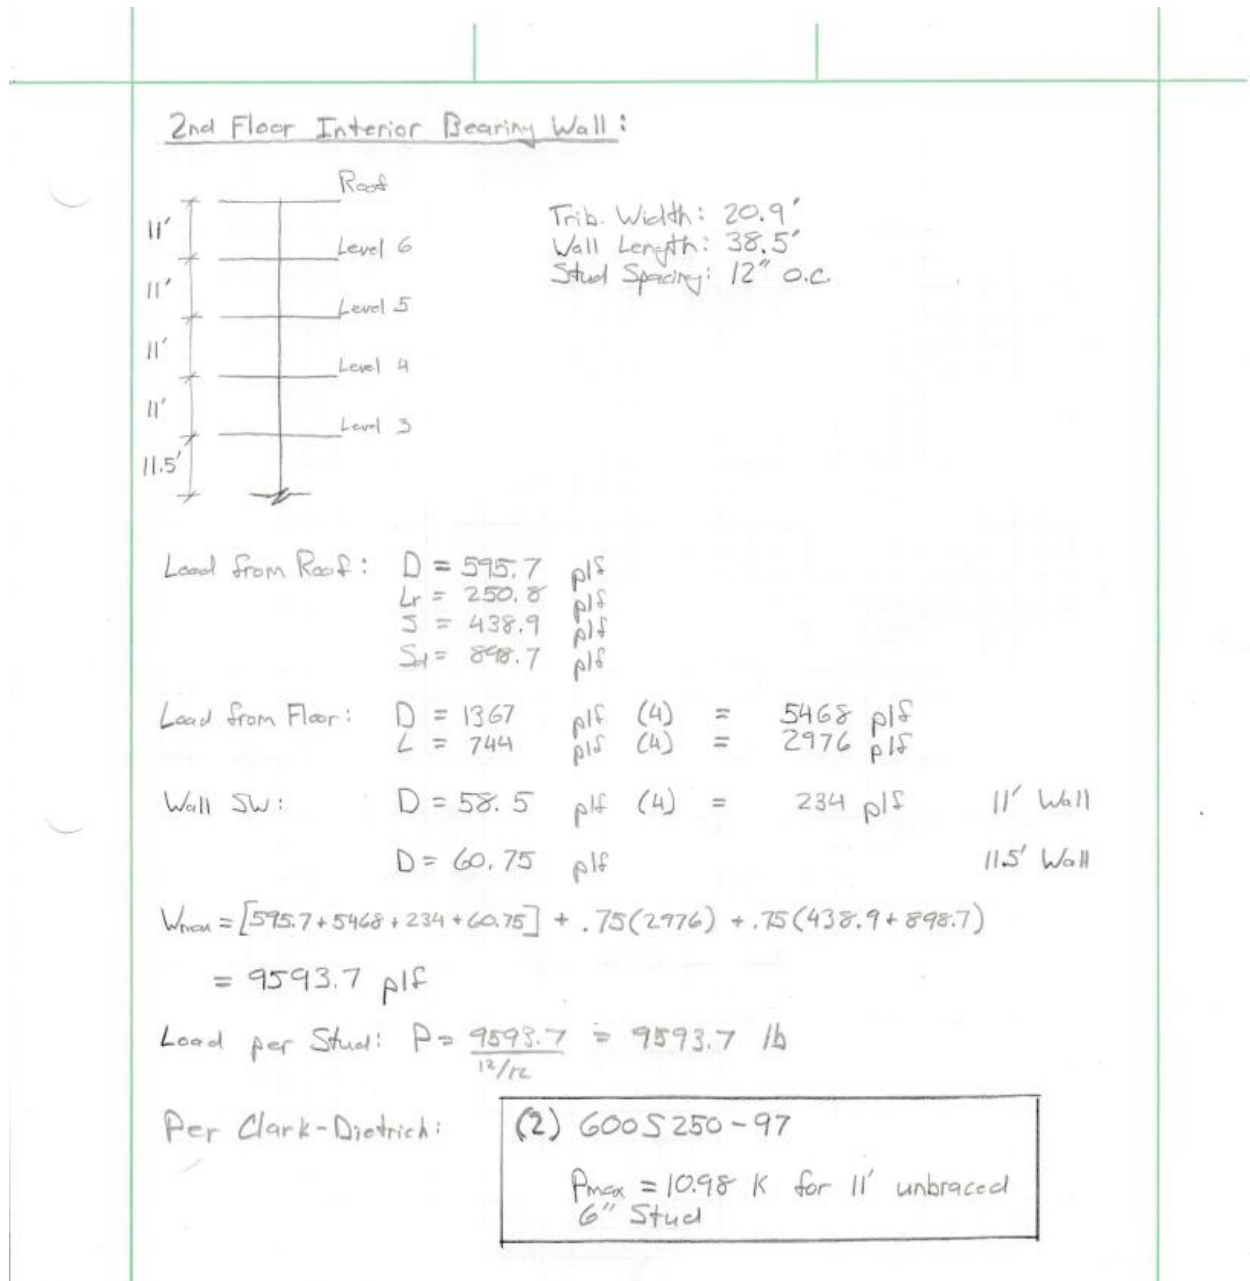 2nd Floor Interior Bearing Wall:
Roof
11'
Level 6
11'
Level 5
11'
Level 4
11'
Level 3
11.5'
Trib. Width: 20.9'
Wall Length: 38.5'
Stud Spacing: 12" O.C.
Load from Roof: D = 595.7 plf
Lr = 250.8 plf
S = 438.9 plf
Sd = 898.7 plf
Load from Floor: D = 1367 plf (4) = 5468 plf
L = 744 plf (4) = 2976 plf
Wall SW: D = 58.5 plf (4) = 234 plf 11' Wall
D = 60.75 plf 11.5' Wall
Wmax = [595.7 + 5468 + 234 + 60.75] + .75(2976) + .75(438.9 + 898.7)
= 9593.7 plf
Load per Stud: P = 9593.7 = 9593.7 lb
12/12
Per Clark-Dietrich:
(2) 600S250-97
Pmax = 10.98 K for 11' unbraced
6" Stud